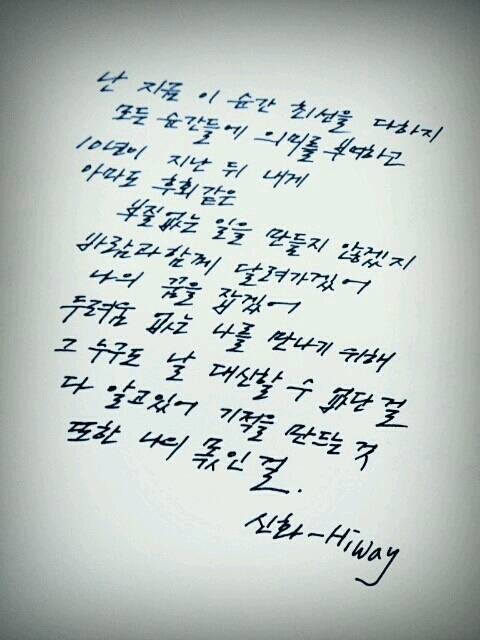 난 지금 이 순간 최선을 다하지
모든 순간들에 의미를 부여하고
10년이 지난 뒤 내게
아마도 후회같은
부질없는 일을 만들지 않겠지
바람과 함께 달려가겠어
나의 꿈을 잡겠어
두려움 없는 나를 만나기 위해
그 누구도 날 대신할 수 없단 걸
다 알고있어 기적을 만드는 것
또한 나의 몫인 걸.
신화-Hiway